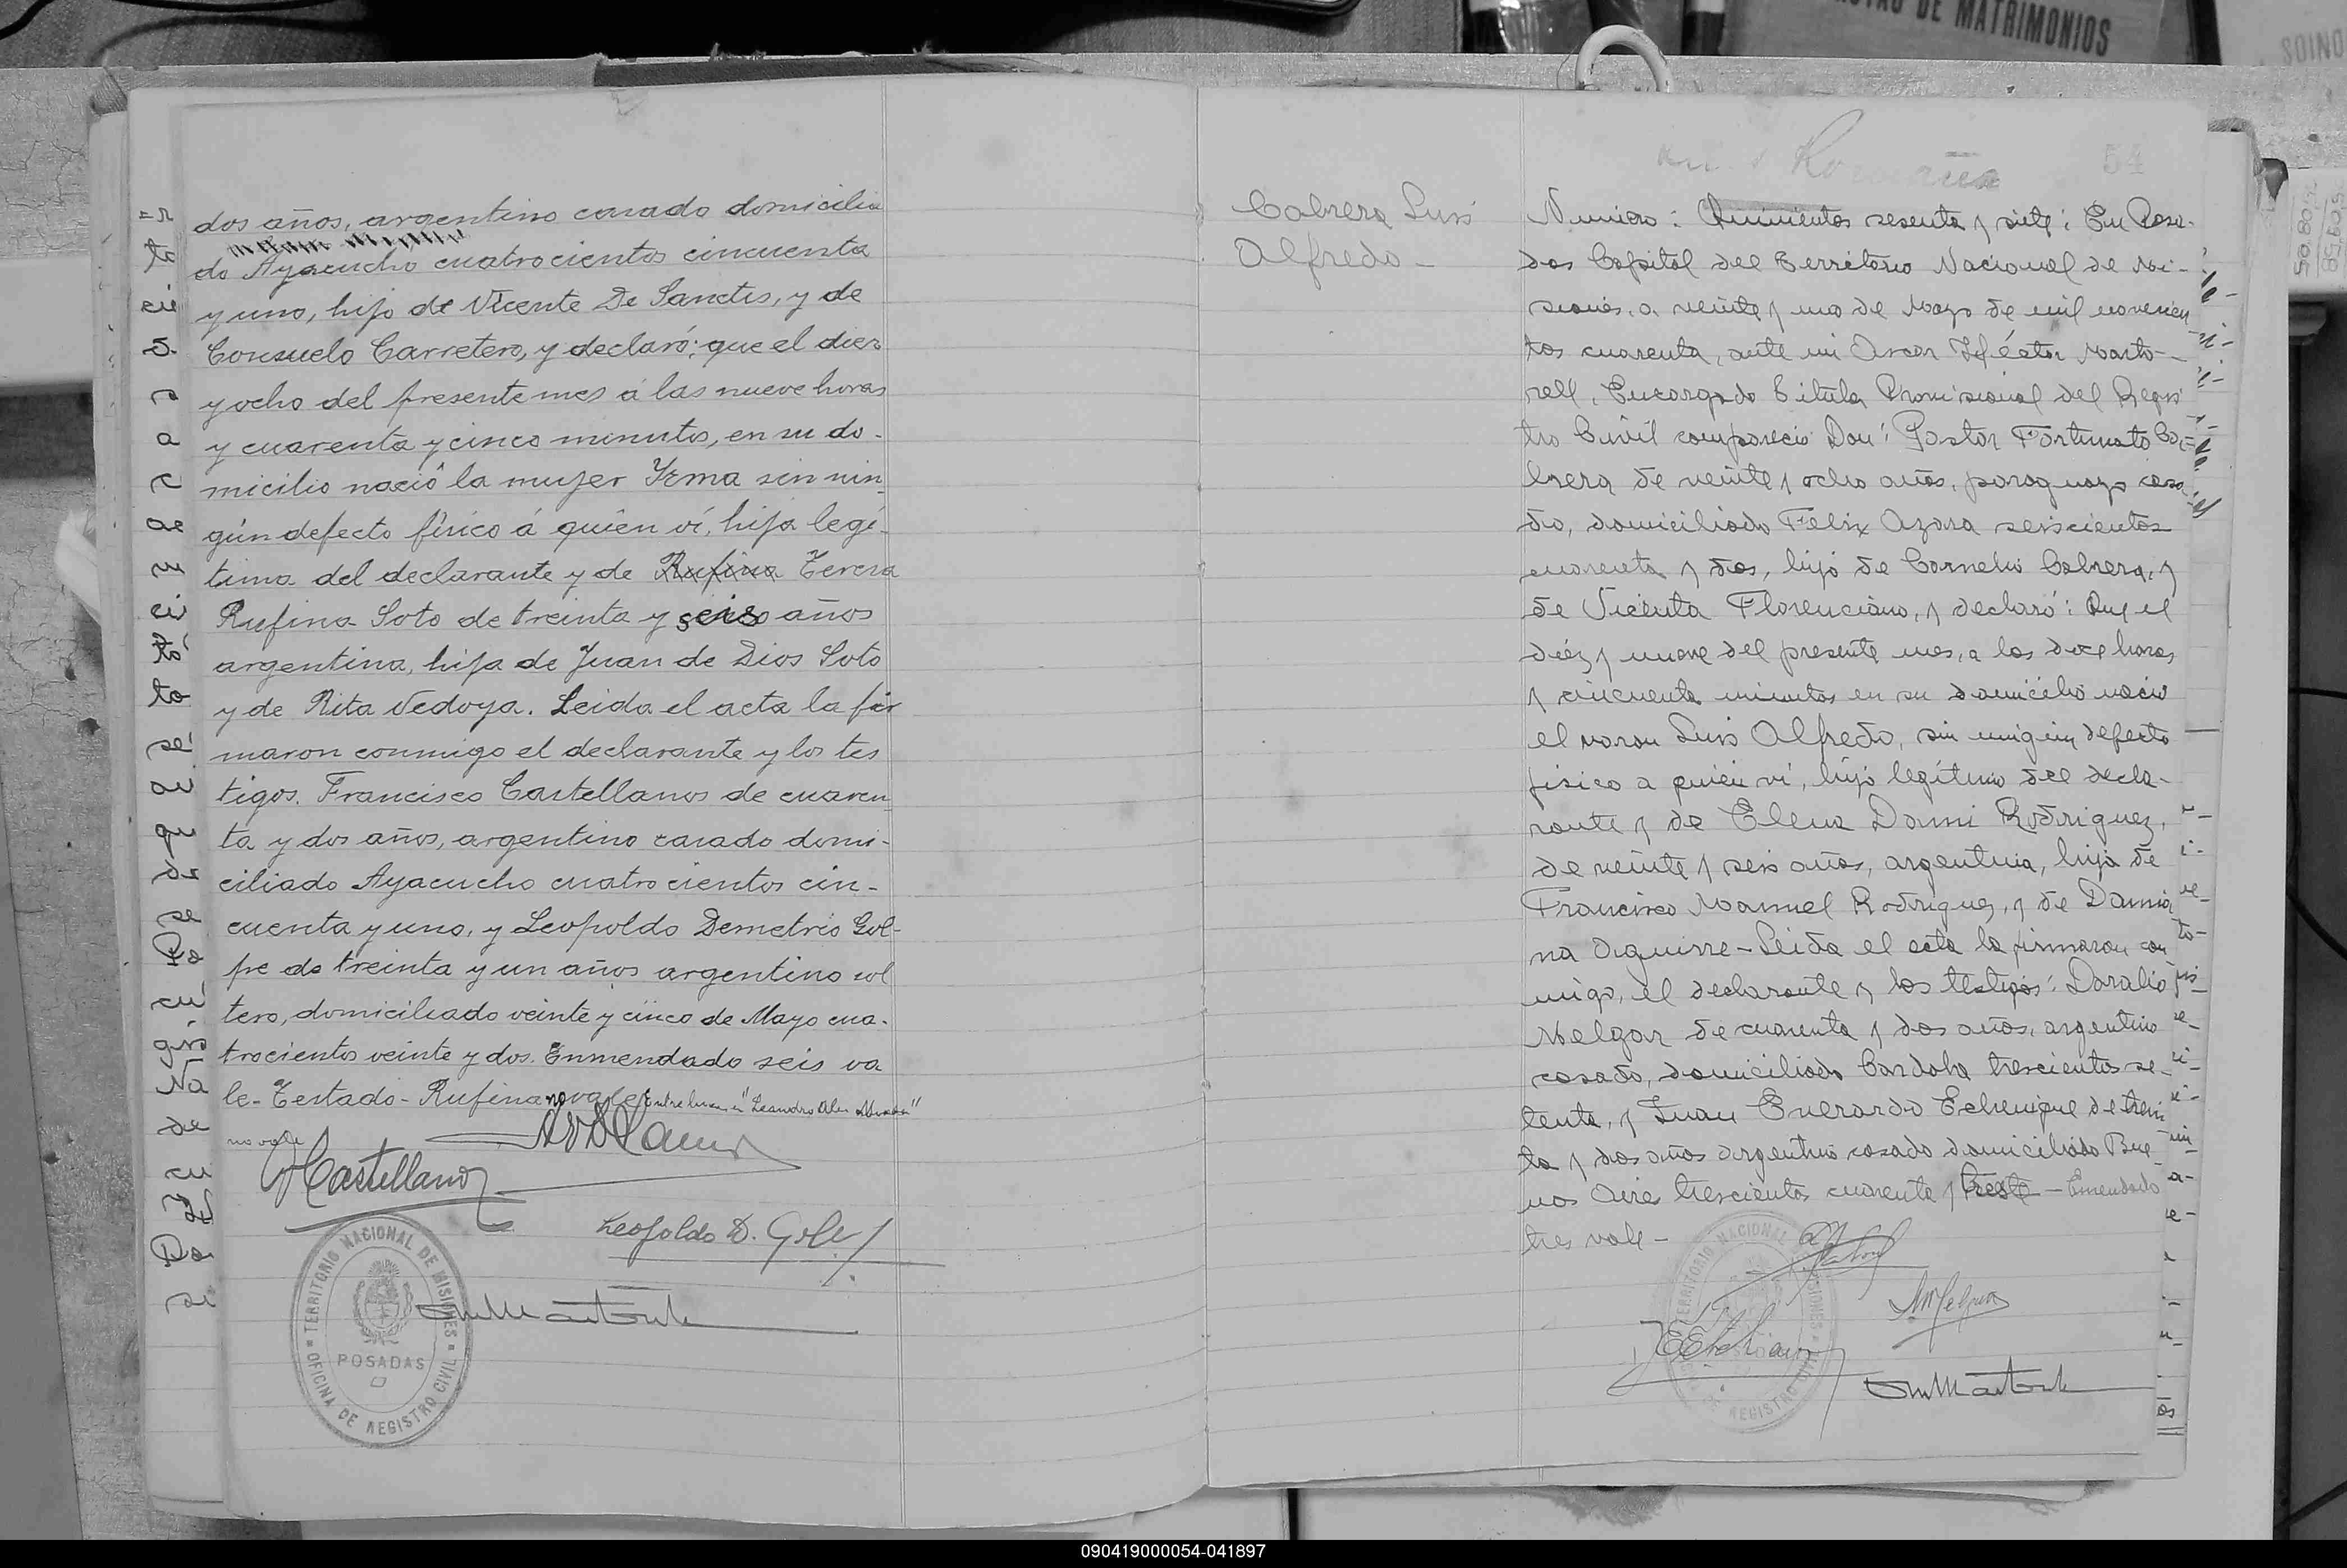 DE MATRIMONIOS
dos años, argentino casado domicilia
do Ayacucho cuatrocientos cincuenta
y uno, hijo de Vicente De Sanctis, y de
Consuelo Carretero, y declaró; que el diez
y ocho del presente mes á las nueve horas
y cuarenta y cinco minutos, en su do-
micilio nació la mujer Irma sin nin
gún defecto físico á quién ví, hija legí-
tima del declarante y de Rufina Teresa
Rufina Soto de treinta y seis años
argentina, hija de Juan de Dios Soto
y de Rita Vedoya. Leida el acta la fir
maron conmigo el declarante y los tes
tigos. Francisco Castellanos de cuaren
ta y dos años, argentino casado domi-
ciliado Ayacucho cuatrocientos cin-
cuenta y uno, y Leopoldo Demetrio Gol-
pe de treinta y un años argentino sol
tero, domiciliado veinte y cinco de Mayo cua-
trocientos veinte y dos. Enmendado seis va
le- Testado- Rufina no vale Entre lineas "Leandro Alem
no vale
Castellanos
Leopoldo D. Golpe
TERRITORIO NACIONAL DE MISIONES
POSADAS
OFICINA DE REGISTRO CIVIL
54
Cabrera Luis
Alfredo-
Número: Quinientos sesenta y siete: En Posa-
das Capital del Territorio Nacional de Mi-
siones, a veinte y uno de Mayo de mil novecien
tos cuarenta, ante mi Oscar Héctor Marto-
rell, Encargado Titular Provisional del Regis
tro Civil compareció Don: Pastor Fortunato Ca-
brera de veinte y ocho años, paraguayo casa
do, domiciliado Felix Azara seiscientos
cuarenta y dos, hijo de Cornelio Cabrera, y
de Vicenta Florenciano, y declaró: Que el
diéz y nueve del presente mes, a las doce horas
y cincuenta minutos en su domicilio nació
el varon Luis Alfredo, sin ningún defecto
fisico a quién ví, hijo legítimo del decla-
rante y de Elena Dami Rodriguez,
de veinte y seis años, argentina, hija de
Francisco Manuel Rodriguez, y de Damia
na Aguirre- Leida el acta la firmaron con
migo, el declarante y los testigos: Daralio
Melgar de cuarenta y dos años, argentino
casado, domiciliado Cordoba trescientos se-
tenta, y Juan Everardo Echenique de trein
ta y dos años argentino casado domiciliado Bue
nos Aires trescientos cuarenta y tres - Emendado
tres vale-
090419000054-041897